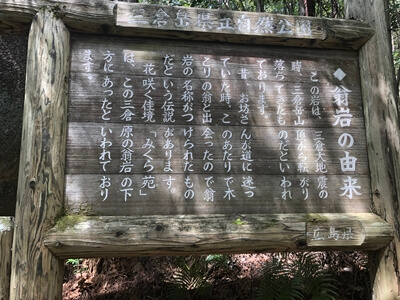 三倉岳県立自然公園
◆翁岩の由来
この岩は、三倉大地震の
時、三倉岳山頂から転がり
落ちてきたものだといわれ
ております。
昔、お坊さんが道に迷っ
ていた時、このあたりで木
こりの翁と出会ったので翁
岩の名称がつけられたもの
だという伝説があります。
花咲く佳境「みくら苑」
は、この三倉原の翁岩の下
方にあったといわれており
ます。
広島県